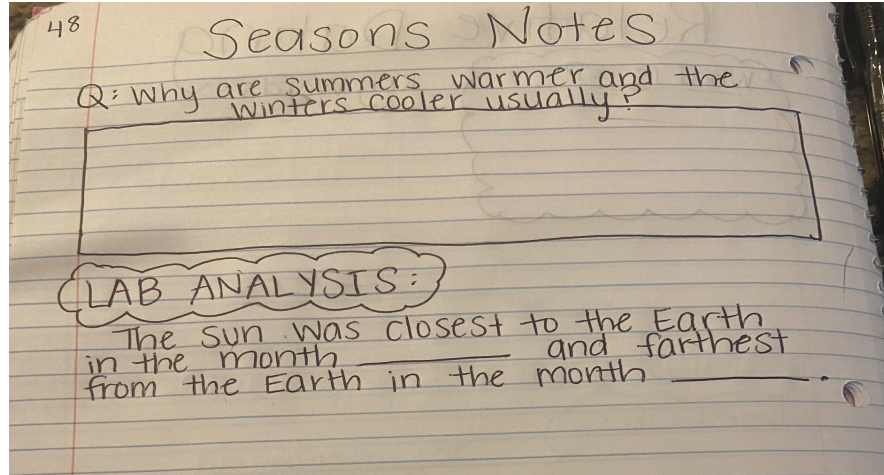 48
Seasons Notes
Q: Why are summers warmer and the
winters cooler usually?
LAB ANALYSIS:
The sun was closest to the Earth
in the month __________ and farthest
from the Earth in the month __________.